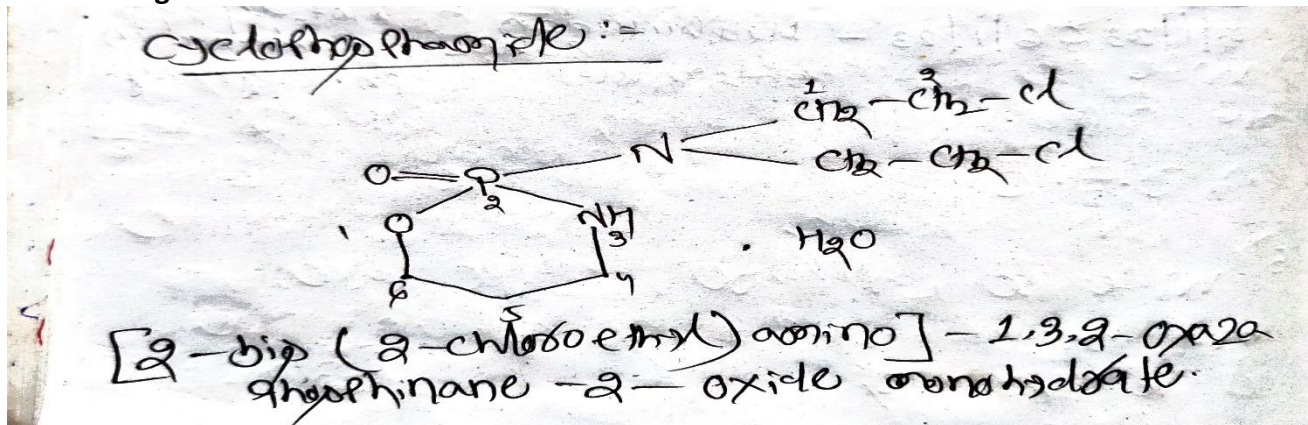 Cyclophosphamide :-
1 2
CH2 - CH2 - Cl
N
CH2 - CH2 - Cl
O = P
2
1 O NH
3
. H2O
6 4
5
[2-bis (2-chloroethyl) amino] - 1,3,2-oxaza
phosphinane -2- oxide monohydrate.